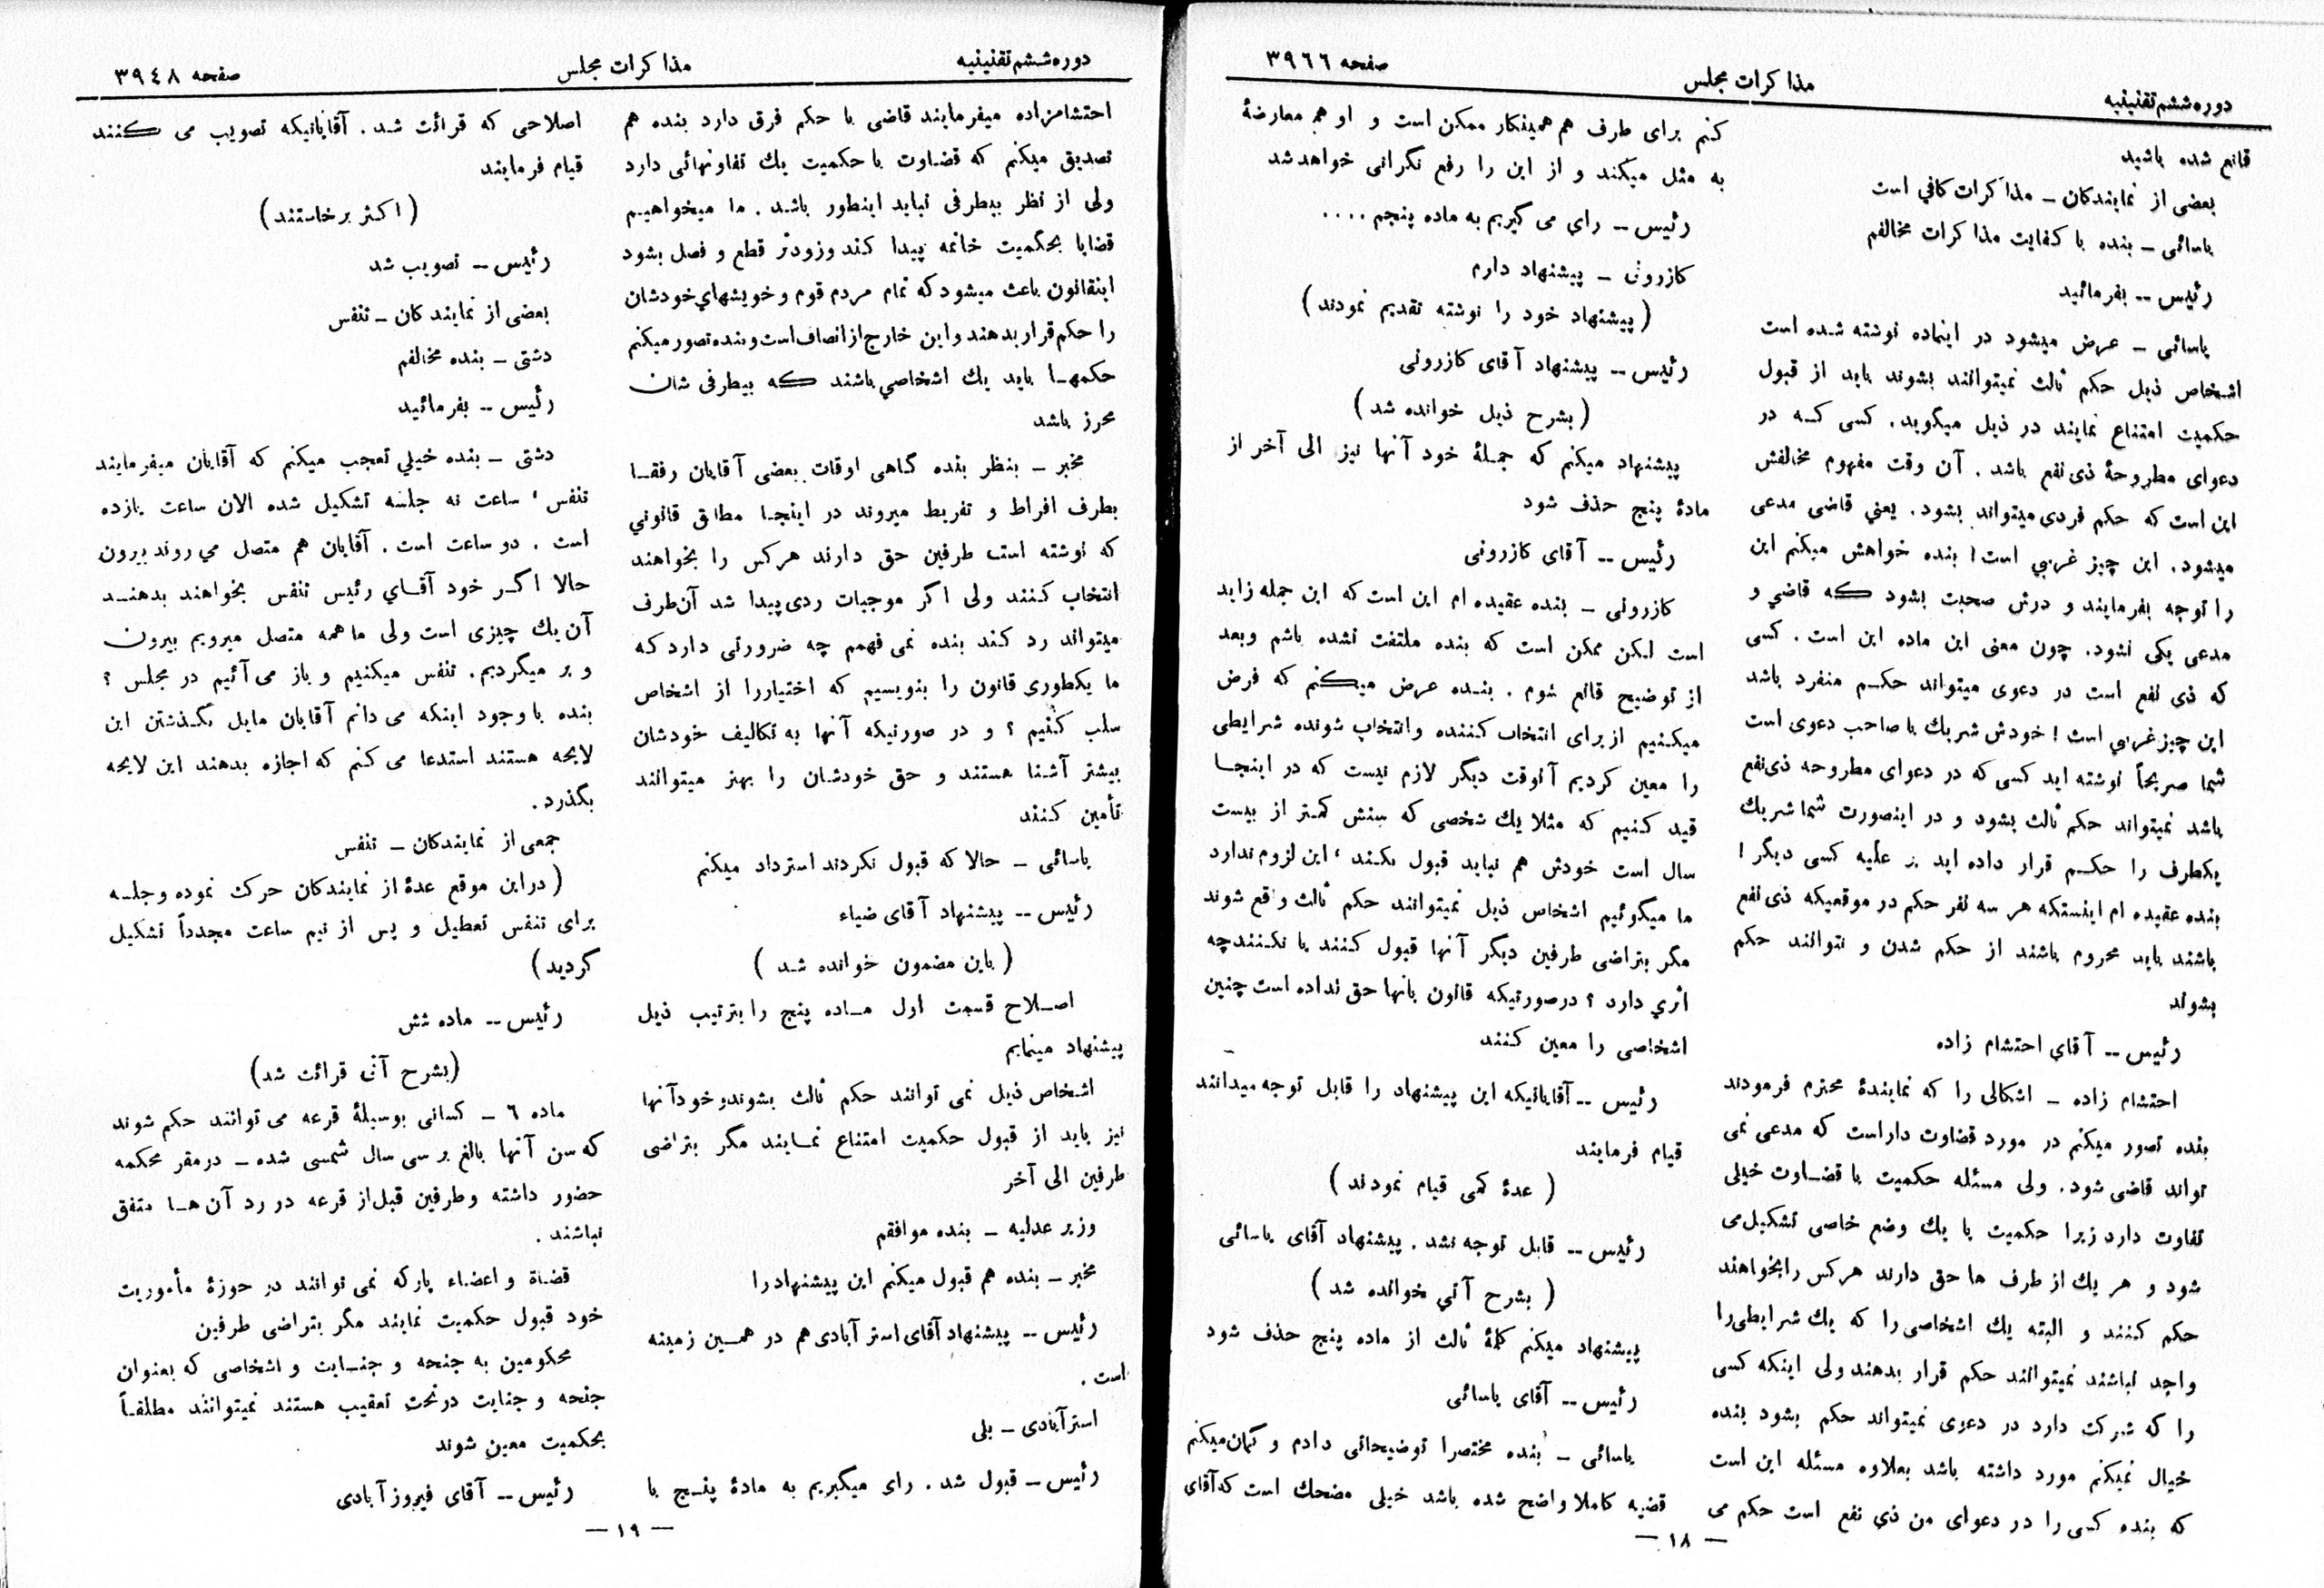 دوره ششم تقنینیه
مذاکرات مجلس
صفحه ۳۹۶۶
قانع شده باشید
بعضی از نمایندکان – مذاکرات کافي است
یاسائی – بنده با کفایت مذاکرات مخالفم
رئیس -- بفرمائید
یاسائی – عرض میشود در اینماده نوشته شده است
اشخاص ذیل حکم ثالث نمیتوانند بشوند باید از قبول
حکمیت امتناع نمایند در ذیل میگوید. کسی که در
دعوای مطروحهٔ ذی نفع باشد. آن وقت مفهوم مخالفش
این است که حکم فردی میتواند بشود. یعني قاضی مدعی
میشود. این چیز غریبي است! بنده خواهش میکنم این
را توجه بفرمایند و درش صحبت بشود که قاضي و
مدعی یکی نشود. چون معنی این ماده این است. کسی
که ذی نفع است در دعوی میتواند حکم منفرد باشد
این چیز غریبي است! خودش شریك یا صاحب دعوی است
شما صریحاً نوشته اید کسی که در دعوای مطروحه ذی نفع
باشد نمیتواند حکم ثالث بشود و در اینصورت شما شریك
یکطرف را حکم قرار داده اید بر علیه کسی دیگر!
بنده عقیده ام اینستکه هر سه نفر حکم در موقعیکه ذی نفع
باشند باید محروم باشند از حکم شدن و نتوانند حکم
بشوند
رئیس -- آقاي احتشام زاده
احتشام زاده – اشکالی را که نمایندهٔ محترم فرمودند
بنده تصور میکنم در مورد قضاوت دار است که مدعی نمی
تواند قاضی شود. ولی مسئله حکمیت با قضاوت خیلی
تفاوت دارد زیرا حکمیت با یك وضع خاصی تشکیل می
شود و هر یك از طرف ها حق دارند هر کس را بخواهند
حکم کنند و البته یك اشخاصی را که یك شرایطی را
واجد نباشند نمیتوانند حکم قرار بدهند ولی اینکه کسی
را که شرکت دارد در دعوی نمیتواند حکم بشود بنده
خیال نمیکنم مورد داشته باشد بعلاوه مسئله این است
که بنده کسی را در دعوای من ذي نفع است حکم می
کنم برای طرف هم همینکار ممکن است و او هم معارضهٔ
به مثل میکند و از این را رفع نگرانی خواهد شد
رئیس -- راي می گیریم به ماده پنجم ....
کازرونی – پیشنهاد دارم
(پیشنهاد خود را نوشته تقدیم نمودند)
رئیس -- پیشنهاد آقای کازرونی
(بشرح ذیل خوانده شد)
پیشنهاد میکنم که جملهٔ خود آنها نیز الی آخر از
مادهٔ پنج حذف شود
رئیس -- آقای کازرونی
کازرونی – بنده عقیده ام این است که این جمله زاید
است لیکن ممکن است که بنده ملتفت نشده باشم و بعد
از توضیح قانع شوم. بنده عرض میکنم که فرض
میکنیم از برای انتخاب کننده و انتخاب شونده شرایطی
را معین کردیم آنوقت دیگر لازم نیست که در اینجا
قید کنیم که مثلا یك شخصی که سنش کمتر از بیست
سال است خودش هم نباید قبول بکند، این لزوم ندارد
ما میگوئیم اشخاص ذیل نمیتوانند حکم ثالث واقع شوند
مگر بتراضی طرفین دیگر آنها قبول کنند یا نکنند چه
اثري دارد؟ در صورتیکه قانون بانها حق نداده است چنین
اشخاصی را معین کنند
رئیس -- آقایانیکه این پیشنهاد را قابل توجه میدانند
قیام فرمایند
(عدهٔ کمی قیام نمودند)
رئیس -- قابل توجه نشد. پیشنهاد آقای یاسائی
(بشرح آتي خوانده شد)
پیشنهاد میکنم کلمهٔ ثالث از ماده پنج حذف شود
رئیس -- آقای یاسائی
یاسائی – بنده مختصرا توضیحاتی دادم و گمان میکنم
قضیه کاملا واضح شده باشد خیلی مضحك است که آقای
– ۱۸ –
دوره ششم تقنینیه
مذاکرات مجلس
صفحه ۳۹٤۸
احتشامزاده میفرمایند قاضی با حکم فرق دارد بنده هم
تصدیق میکنم که قضاوت با حکمیت یك تفاوتهائی دارد
ولی از نظر بیطرفی نباید اینطور باشد. ما میخواهیم
قضایا بحکمیت خاتمه پیدا کند وزودتر قطع و فصل بشود
اینقانون باعث میشود که تمام مردم قوم و خویشهاي خودشان
را حکم قرار بدهند و این خارج از انصاف است و بنده تصور میکنم
حکمها باید یك اشخاصي باشند که بیطرفی شان
محرز باشد
مخبر – بنظر بنده گاهی اوقات بعضی آقایان رفقا
بطرف افراط و تفریط میروند در اینجا مطابق قانوني
که نوشته است طرفین حق دارند هر کس را بخواهند
انتخاب کنند ولی اگر موجبات ردی پیدا شد آن طرف
میتواند رد کند بنده نمی فهمم چه ضرورتی دارد که
ما یکطوری قانون را بنویسیم که اختیار را از اشخاص
سلب کنیم؟ و در صورتیکه آنها به تکالیف خودشان
بیشتر آشنا هستند و حق خودشان را بهتر میتوانند
تأمین کنند
یاسائی – حالا که قبول نکردند استرداد میکنم
رئیس -- پیشنهاد آقای ضیاء
(باین مضمون خوانده شد)
اصلاح قسمت اول ماده پنج را بترتیب ذیل
پیشنهاد مینمایم
اشخاص ذیل نمی توانند حکم ثالث بشوند و خود آنها
نیز باید از قبول حکمیت امتناع نمایند مگر بتراضی
طرفین الی آخر
وزیر عدلیه – بنده موافقم
مخبر – بنده هم قبول میکنم این پیشنهاد را
رئیس -- پیشنهاد آقای استرآبادی هم در همین زمینه
است.
استرآبادی – بلی
رئیس – قبول شد. رای میگیریم به مادهٔ پنج با
اصلاحی که قرائت شد. آقایانیکه تصویب می کنند
قیام فرمایند
(اکثر برخاستند)
رئیس -- تصویب شد
بعضی از نمایندکان – تنفس
دشتی – بنده مخالفم
رئیس -- بفرمائید
دشتی – بنده خیلي تعجب میکنم که آقایان میفرمایند
تنفس، ساعت نه جلسه تشکیل شده الان ساعت یازده
است. دو ساعت است. آقایان هم متصل مي روند بیرون
حالا اگر خود آقاي رئیس تنفس بخواهند بدهند
آن یك چیزی است ولی ما همه متصل میرویم بیرون
و بر میگردیم. تنفس میکنیم و باز می آئیم در مجلس؟
بنده با وجود اینکه می دانم آقایان مایل بگذشتن این
لایحه هستند استدعا می کنم که اجازه بدهند این لایحه
بگذرد.
جمعی از نمایندکان – تنفس
(در این موقع عدهٔ از نمایندکان حرکت نموده و جلسه
برای تنفس تعطیل و پس از نیم ساعت مجدداً تشکیل
گردید)
رئیس -- ماده شش
(بشرح آتی قرائت شد)
ماده ٦ – کسانی بوسیلهٔ قرعه می توانند حکم شوند
که سن آنها بالغ بر سی سال شمسی شده – در مقر محکمه
حضور داشته و طرفین قبل از قرعه در رد آن ها متفق
نباشند.
قضاة و اعضاء پارکه نمی توانند در حوزهٔ مأموریت
خود قبول حکمیت نمایند مگر بتراضی طرفین
محکومین به جنحه و جنایت و اشخاصی که بعنوان
جنحه و جنایت در تحت تعقیب هستند نمیتوانند مطلقاً
بحکمیت معین شوند
رئیس -- آقای فیروزآبادی
– ۱۹ –